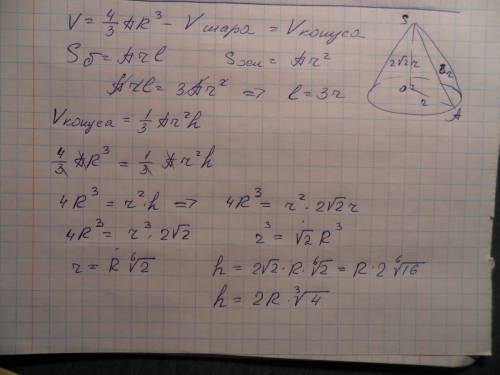 V = 4/3 πR³ - V шара = V конуса
S б = πrl   S осн = πr²
πrl = 3πr² => l = 3r
V конуса = 1/3 πr²h
4/3 πR³ = 1/3 πr²h
4R³ = r²·h => 4R³ = r²·2√2r
4R³ = r³·2√2   r³ = √2 R³
r = R ⁶√2   h = 2√2·R·⁶√2 = R·2 ⁶√16
h = 2R·³√4
S
2√2r
3r
O
r
A